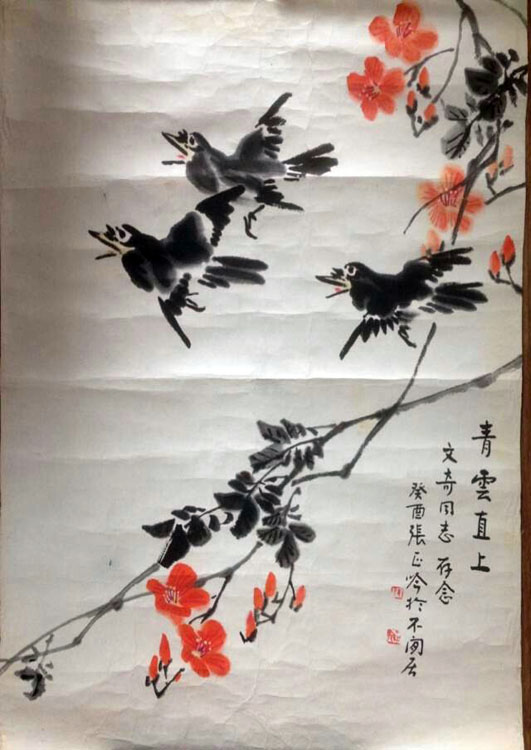 青雲直上
文奇同志 存念
癸酉張正吟於不閑居